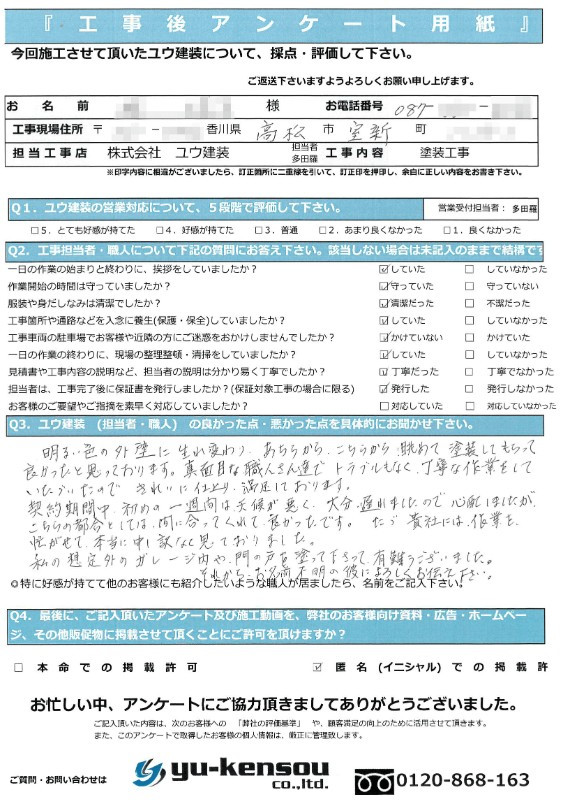 『 工 事 後 ア ン ケ ー ト 用 紙 』
今回施工させて頂いたユウ建装について、採点・評価して下さい。
ご返送下さいますようよろしくお願い申し上げます。
お 名 前 様 お電話番号 087- -
工事現場住所 〒 香川県 高松 市 室新 町
担当工事店 株式会社 ユウ建装 担当者 多田羅 工事内容 塗装工事
※印字内容に相違がございましたら、訂正箇所に二重線を引いて、訂正印を押印し、余白に正しい内容をお書き下さい。
Q1．ユウ建装の営業対応について、5段階で評価して下さい。 営業受付担当者：多田羅
□5．とても好感が持てた □4．好感が持てた □3．普通 □2．あまり良くなかった □1．良くなかった
Q2．工事担当者・職人について下記の質問にお答え下さい。該当しない場合は未記入のままで結構です
一日の作業の始まりと終わりに、挨拶をしていましたか？ ☑していた □ していなかった
作業開始の時間は守っていましたか？ ☑守っていた □ 守っていない
服装や身だしなみは清潔でしたか？ ☑清潔だった □ 不潔だった
工事箇所や通路などを入念に養生(保護・保全)していましたか？ ☑していた □ していなかった
工事車両の駐車場でお客様や近隣の方にご迷惑をおかけしませんでしたか？ ☑かけていない □ かけていた
一日の作業の終わりに、現場の整理整頓・清掃をしていましたか？ ☑していた □ していなかった
見積書や工事内容の説明など、担当者の説明は分かり易く丁寧でしたか？ ☑丁寧だった □ 丁寧でなかった
担当者は、工事完了後に保証書を発行しましたか？(保証対象工事の場合に限る) ☑発行した □ 発行しなかった
お客様のご要望やご指摘を素早く対応していましたか？ □対応していた □ 対応していなかった
Q3．ユウ建装 (担当者・職人) の良かった点・悪かった点を具体的にお聞かせ下さい。
明るい色の外塗に生れ変わり、あちらから、こちらから眺めて塗装してもらって
良かったと思っております。真面目な職人さん達でトラブルもなく、丁寧な作業をして
いただいたので きれいに仕上り、満足しております。
契約期間中、初めの一週間は天候が悪く、大分遅れましたので心配しましたが、
こちらの都合としては、間に合ってくれて良かったです。 ただ貴社には、作業を、
忙がせて、本当に申し訳なく思っておりました。
私の想定外のガレージ内や、門の戸も塗って下さって有難うございました。
それから、お名前不明の彼によろしくお伝え下さい。
◎特に好感が持てて他のお客様にも紹介したいような職人が居ましたら、名前をご記入下さい。
Q4．最後に、ご記入頂いたアンケート及び施工動画を、弊社のお客様向け資料・広告・ホームペー
ジ、その他販促物に掲載させて頂くことにご許可を頂けますか？
□ 本 命 で の 掲 載 許 可 ☑ 匿 名 (イニシャル) で の 掲 載 許
お忙しい中、アンケートにご協力頂きましてありがとうございました。
ご記入頂いた内容は、次のお客様への 「弊社の評価基準」 や、顧客満足の向上のために活用させて頂きます。
また、このアンケートで取得したお客様の個人情報は、厳正に管理致します。
ご質問・お問い合わせは yu-kensou co.,ltd. 0120-868-163